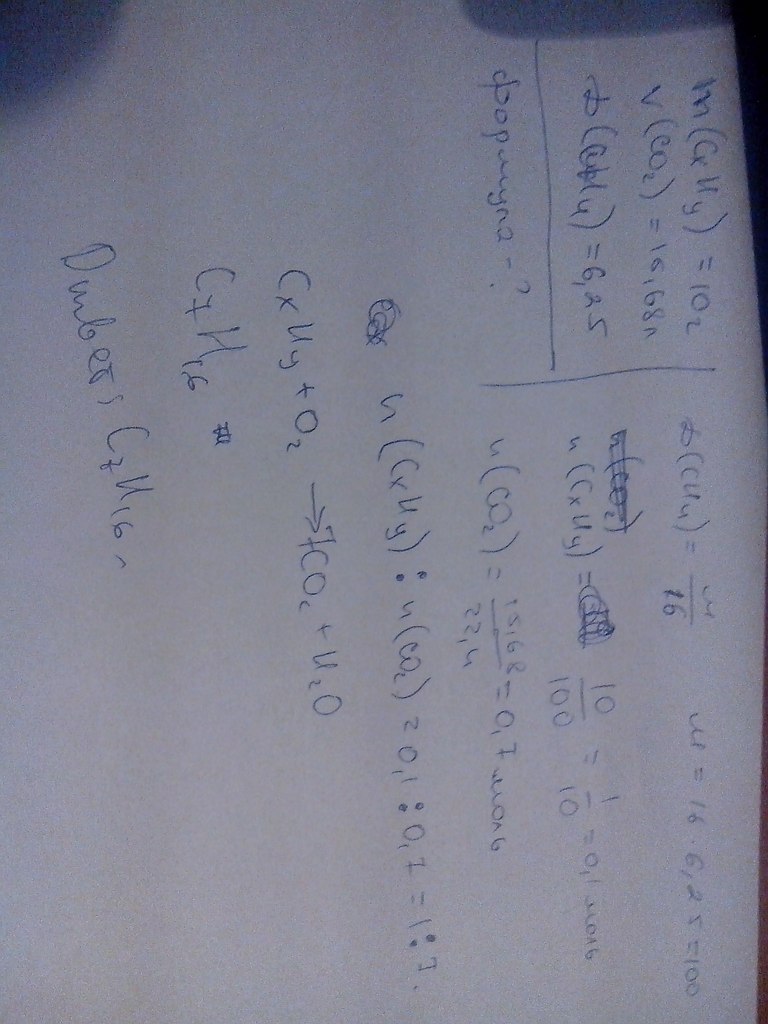 m(CxHy) = 10г
V(CO₂) = 15,68л
D(CH₄) = 6,25
формула - ?
D(CH₄) = м/16 м = 16 · 6,25 = 100
n(CO₂)
n(CxHy) = 10/100 = 1/10 = 0,1 моль
n(CO₂) = 15,68/22,4 = 0,7 моль
n(CxHy) : n(CO₂) = 0,1 : 0,7 = 1:7.
CxHy + O₂ → 7CO₂ + H₂O
C₇H₁₆
Ответ: C₇H₁₆.